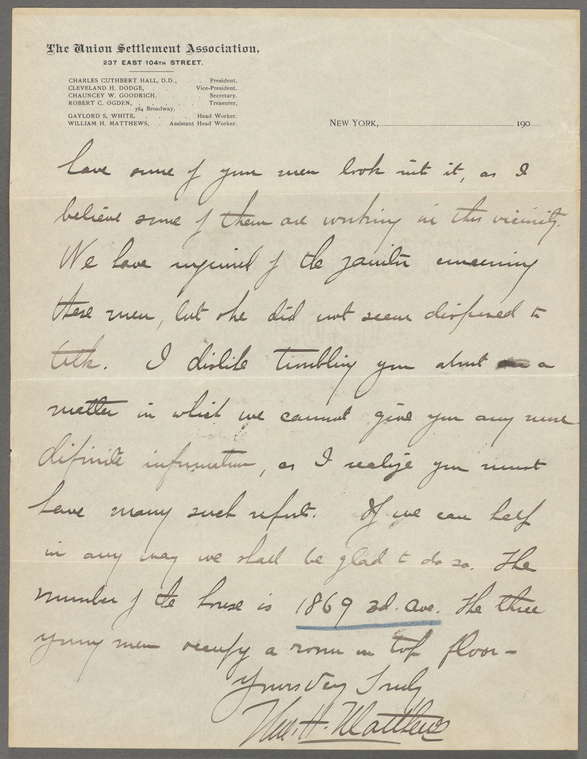 The Union Settlement Association.
237 EAST 104TH STREET.
CHARLES CUTHBERT HALL, D.D., President.
CLEVELAND H. DODGE, Vice-President.
CHAUNCEY W. GOODRICH, Secretary.
ROBERT C. OGDEN, Treasurer,
784 Broadway.
GAYLORD S. WHITE, Head Worker.
WILLIAM H. MATTHEWS, Assistant Head Worker.
NEW YORK, 190
have some of your men look into it, as I
believe some of them are working in this vicinity.
We have inquired of the janitor concerning
these men, but she did not seem disposed to
talk. I dislike troubling you about a
matter in which we cannot give you any more
difinite information, as I realize you must
have many such reports. If we can help
in any way we shall be glad to do so. The
number of the house is 1869 3d. Ave. The three
young men occupy a room on top floor -
Yours Very Truly
Wm. H. Matthews